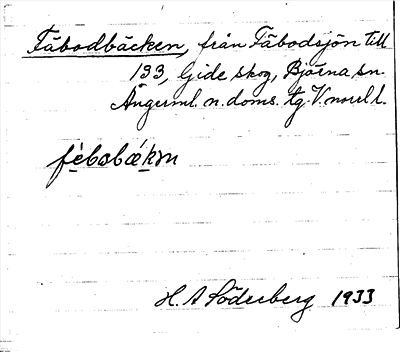 Fäbodbäcken, från Fäbodsjön till
193, Gideskog, Björna sn.
Ångerml. n. doms. tg. V.norrl l.
fèbobǽkm
H. A Söderberg 1933